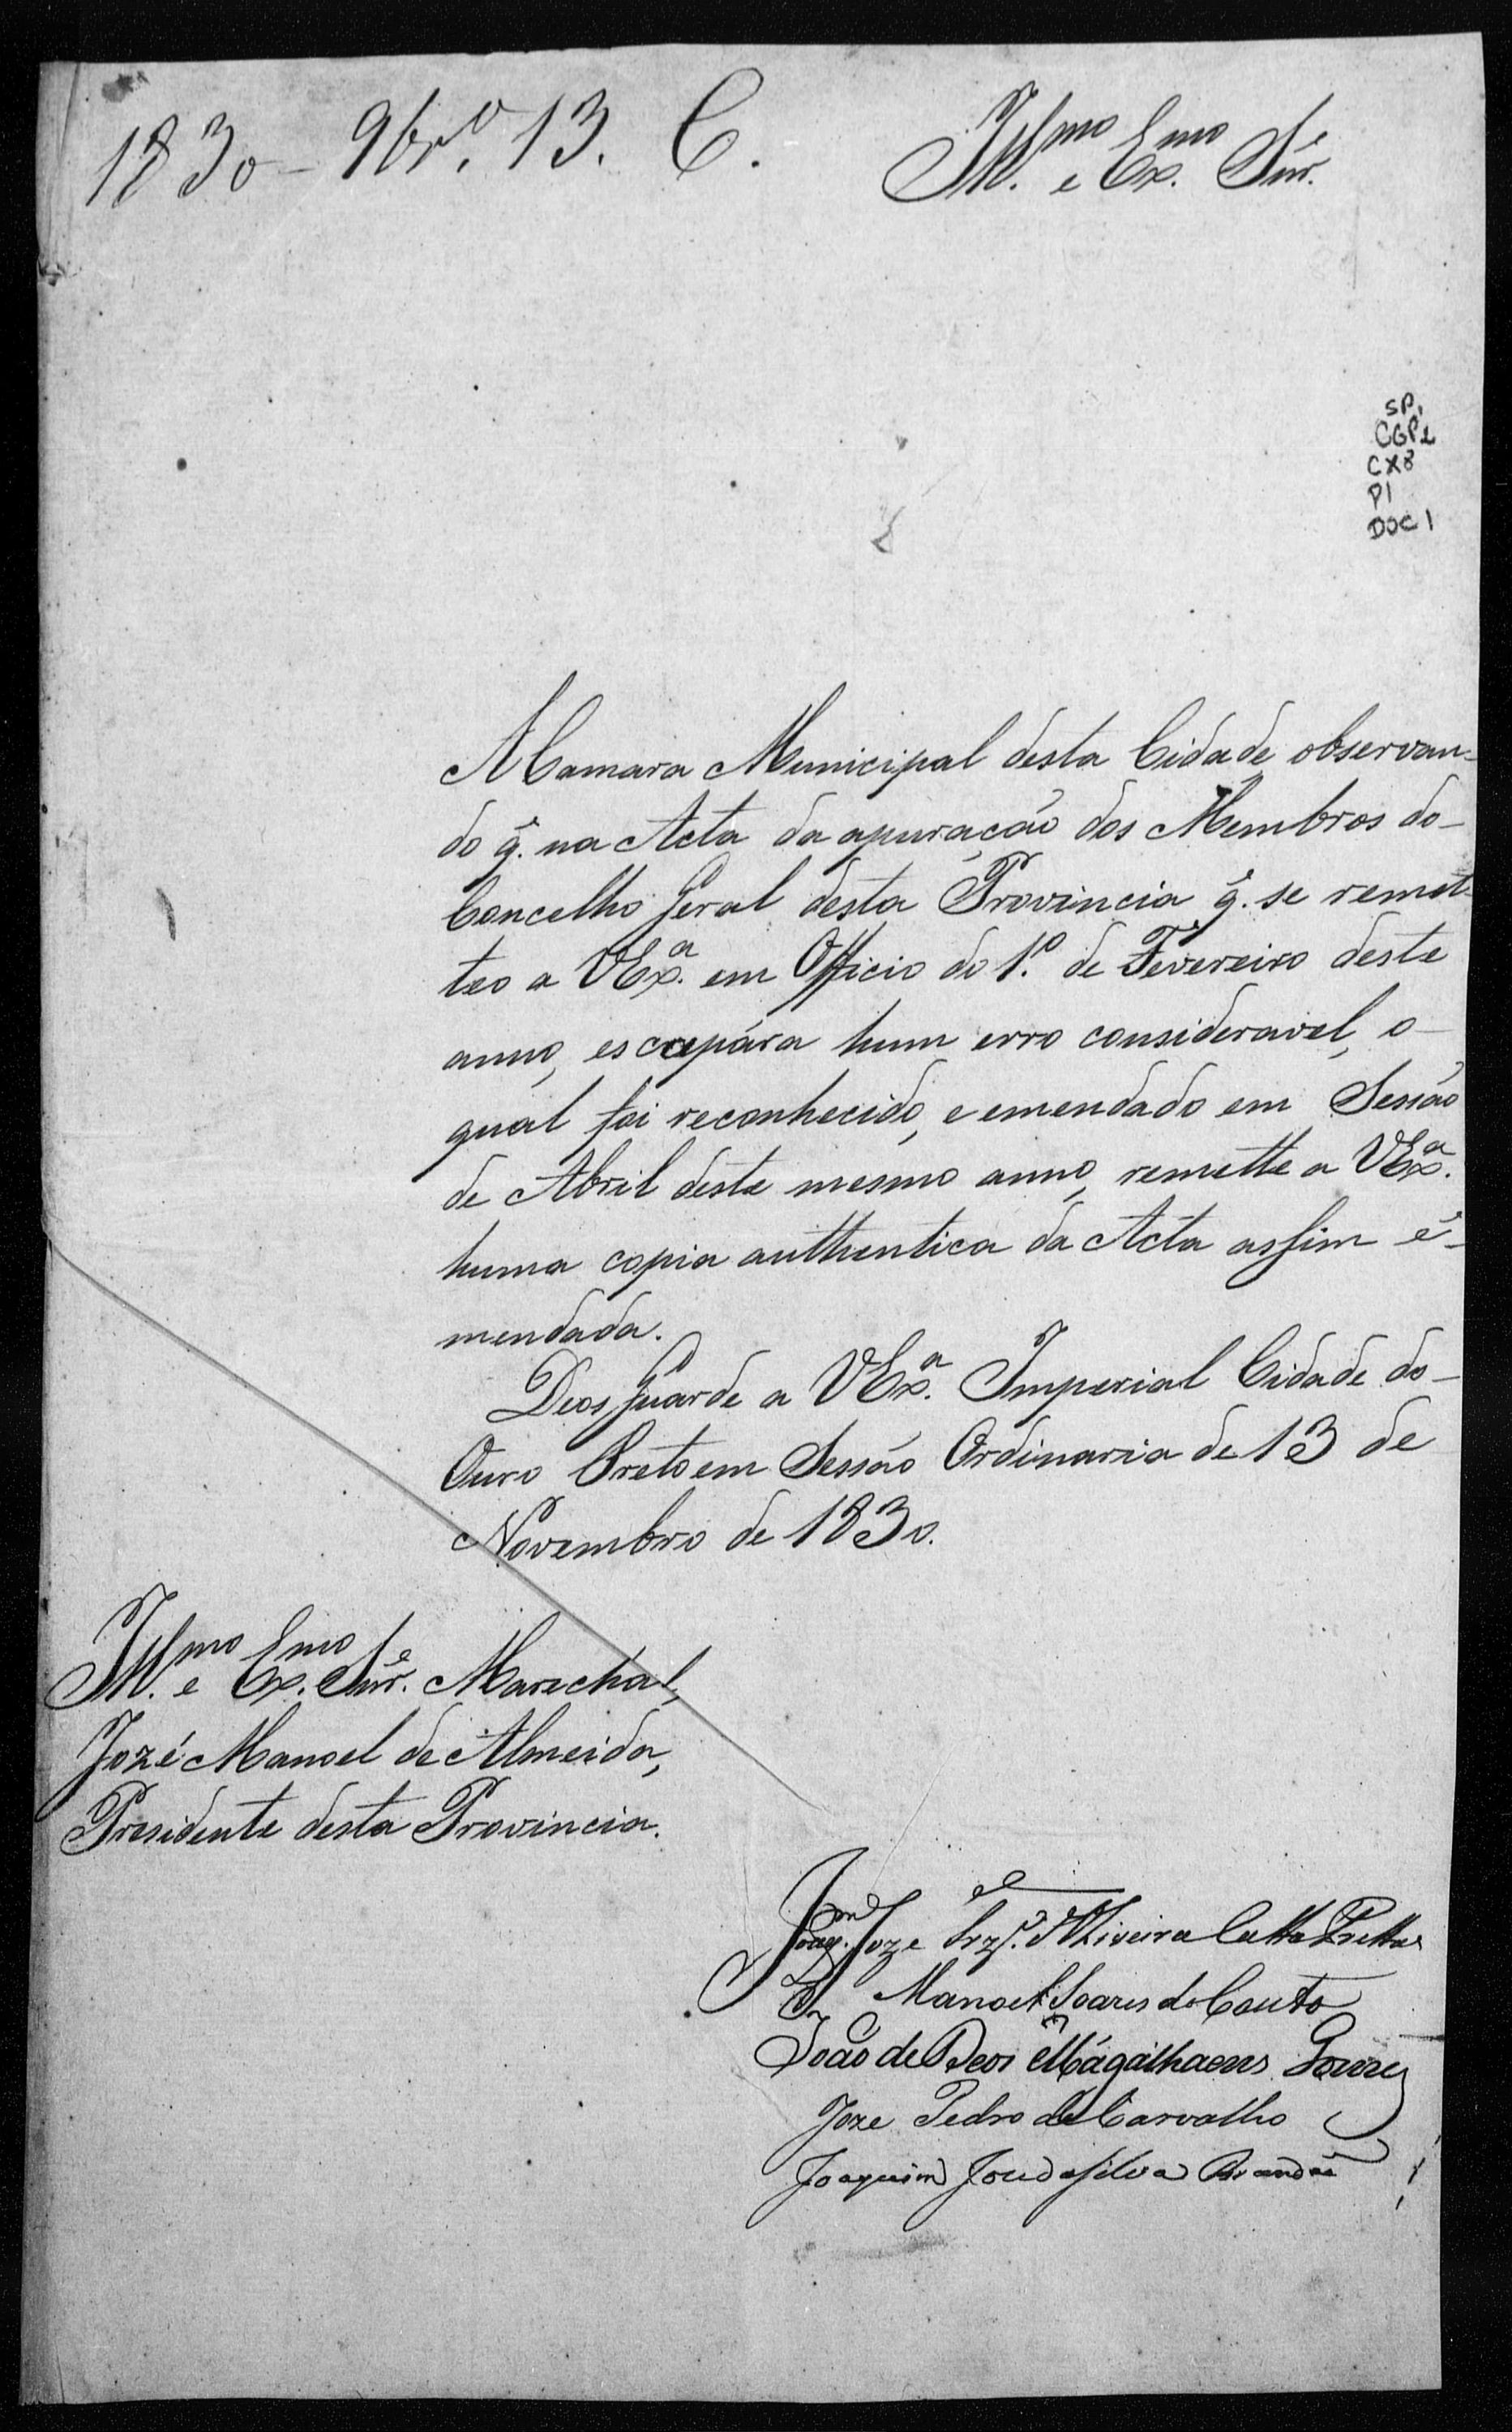 1830 - 9br.º 13. C.
Ill.mo e Ex.mo Snr.
SP,
CGP1
CX8
P1
DOC 1
A Camara Municipal desta Cidade observan-
do q̃. na Acta da apuração dos Membros do
Concelho Geral desta Provincia q̃. se remet-
teo a VEx.ª em Officio do 1.º de Fevereiro deste
anno, escapára hum erro consideravel, o
qual foi reconhecido, e emendado em Sessão
de Abril deste mesmo anno, remette a VEx.ª
huma copia authentica da Acta assim e-
mendada.
Deos Guarde a VEx.ª Imperial Cidade do
Ouro Preto em Sessão Ordinaria de 13 de
Novembro de 1830.
Ill.mo e Ex.mo Snr. Marechal
José Manoel de Almeida,
Presidente desta Provincia.
Joze d'Oliveira Catta Pretta
Manoel Soares do Couto
João de Deos Magalhaens Gomes
Joze Pedro de Carvalho
Joaquim José da Silva Brandão